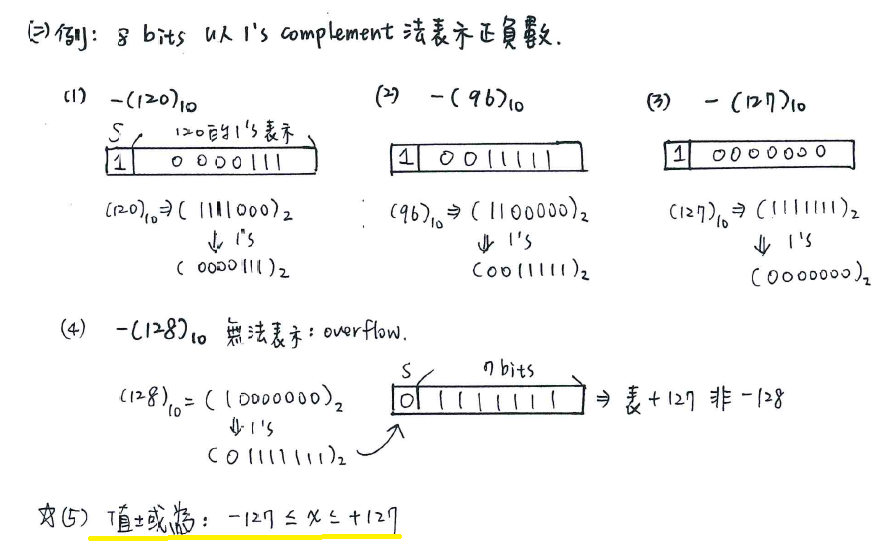 (二) 例: 8 bits 以 1's complement 法表示正負數.
(1) -(120)10
S 120的1's表示
1 0000111
(120)10 ⇒ (1111000)2
⇓ 1's
(0000111)2
(2) -(96)10
1 0011111
(96)10 ⇒ (1100000)2
⇓ 1's
(0011111)2
(3) -(127)10
1 0000000
(127)10 ⇒ (1111111)2
⇓ 1's
(0000000)2
(4) -(128)10 無法表示: overflow.
(128)10 = (10000000)2
⇓ 1's
(01111111)2
S 7 bits
0 1111111 ⇒ 表 +127 非 -128
☆(5) 值域為: -127 ≤ x ≤ +127